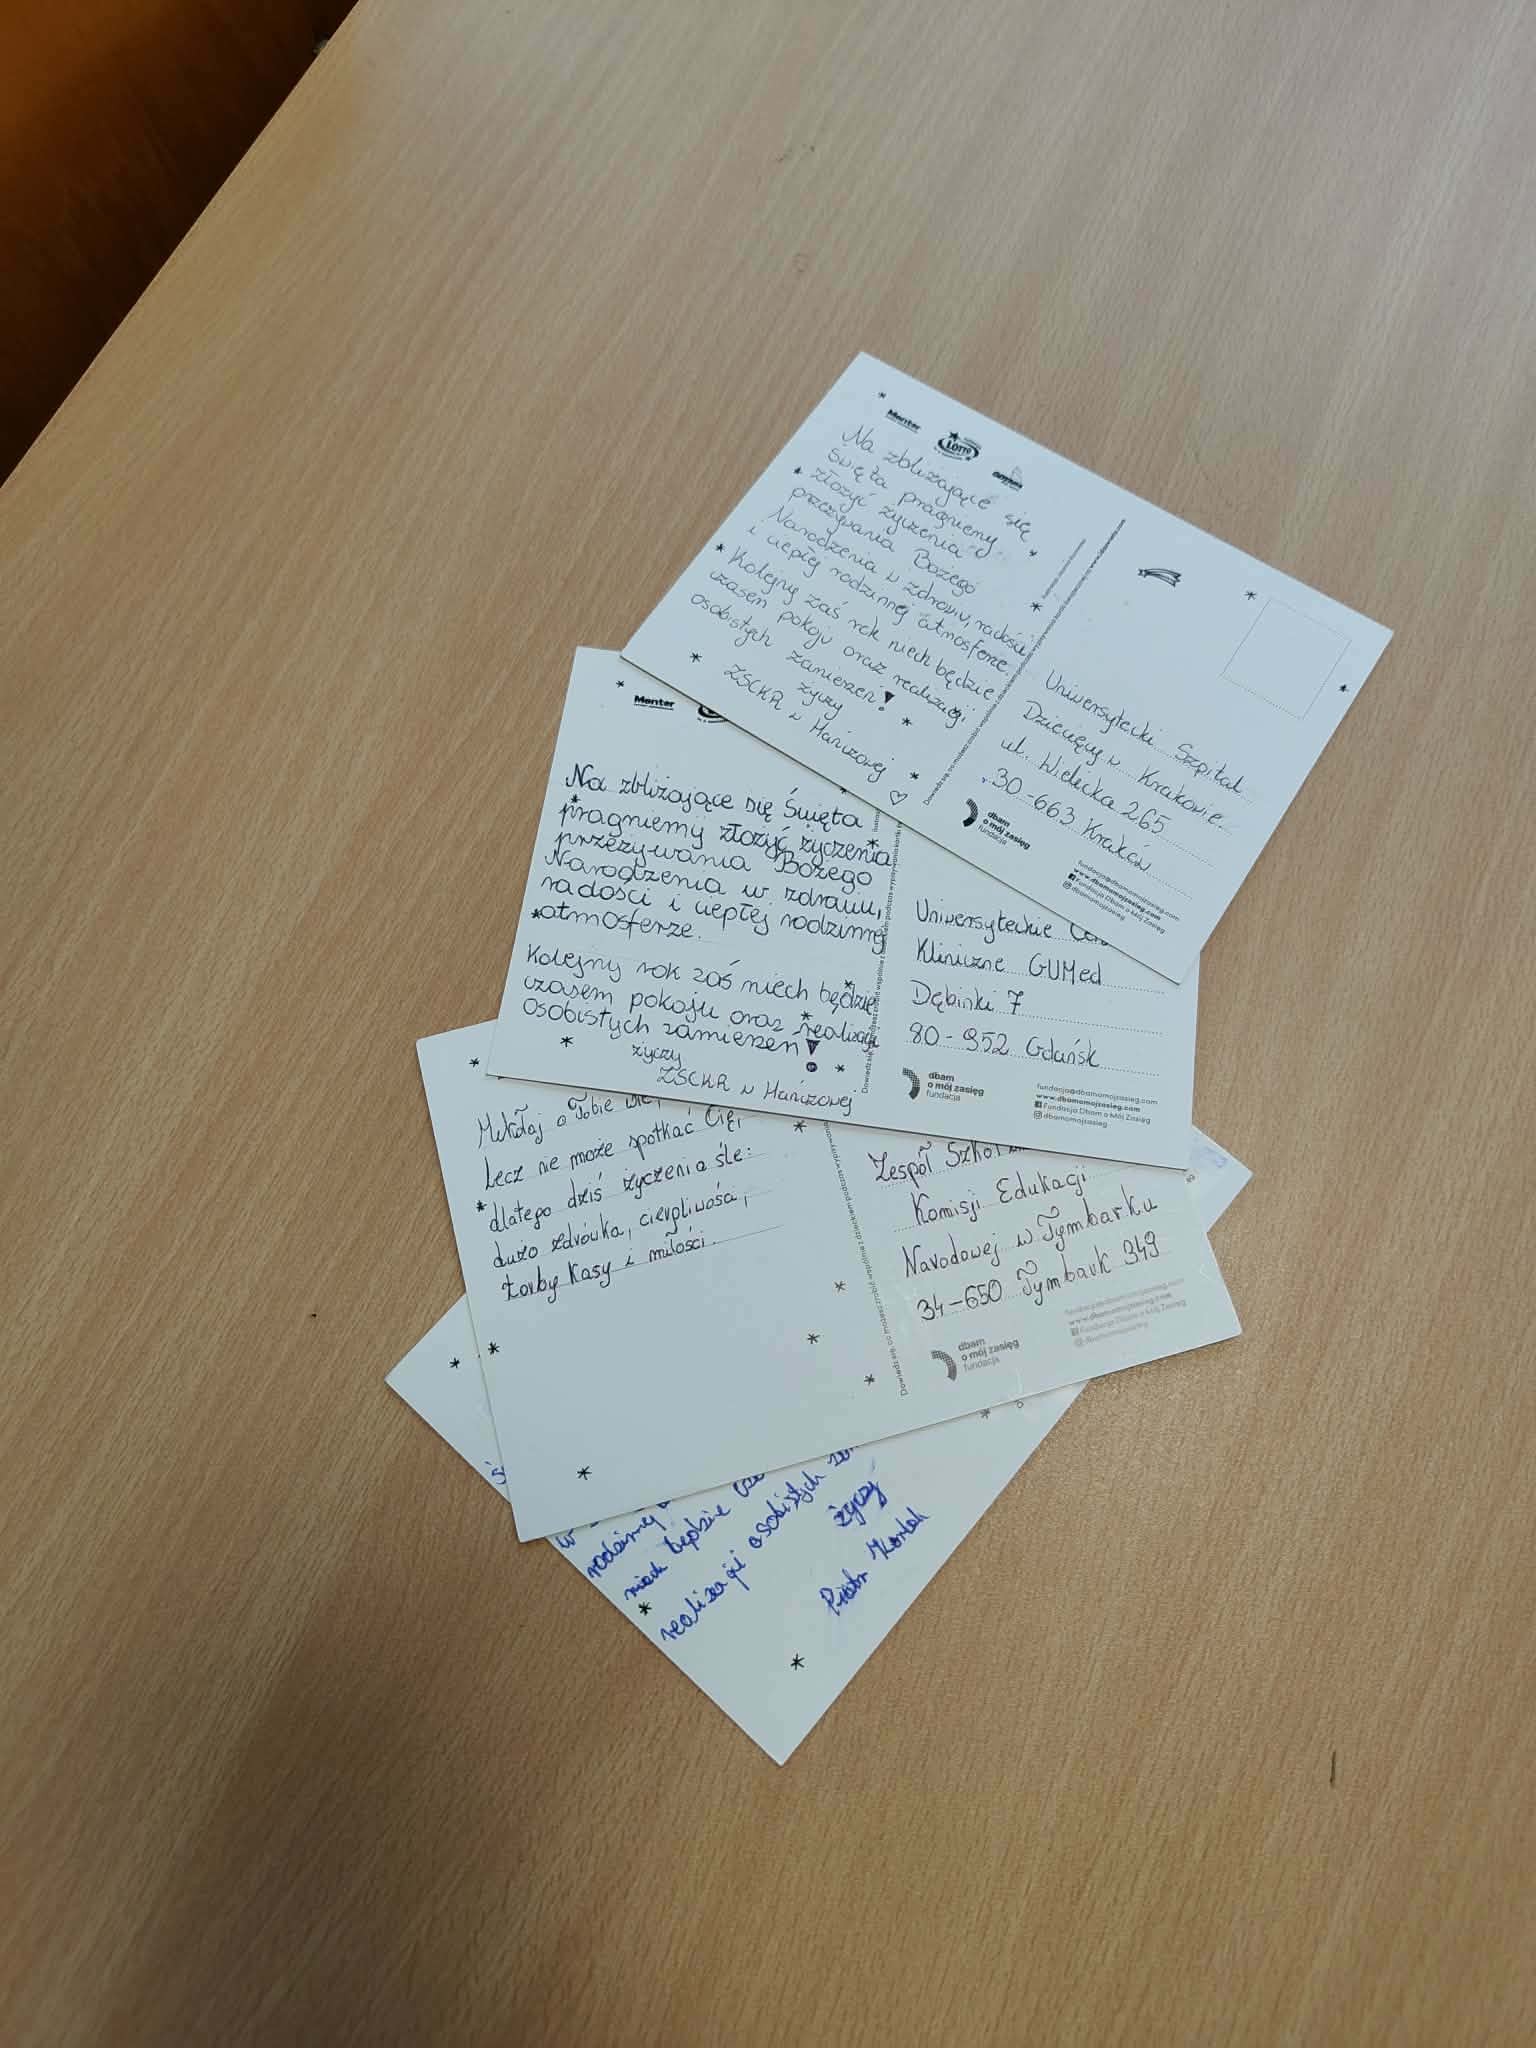 Menter
LOTTO
Na zbliżające się
Święta pragniemy
złożyć życzenia
przeżywania Bożego
Narodzenia w zdrowiu, radości
i ciepłej rodzinnej atmosferze.
Kolejny zaś rok niech będzie
czasem pokoju oraz realizacji
osobistych zamierzeń!
życzy
ZSCKR w Hańczowej
Uniwersytecki Szpital
Dziecięcy w Krakowie
ul. Wielicka 265
30-663 Kraków
dbam
o mój zasięg
fundacja
fundacja@dbamomojzasieg.com
www.dbamomojzasieg.com
Fundacja Dbam o Mój Zasięg
@dbamomojzasieg
Menter
Na zbliżające się Święta
pragniemy złożyć życzenia
przeżywania Bożego
Narodzenia w zdrowiu,
radości i ciepłej rodzinnej
atmosferze.
Kolejny rok zaś niech będzie
czasem pokoju oraz realizacji
osobistych zamierzeń!
życzy
ZSCKR w Hańczowej
Uniwersyteckie
Kliniczne GUMed
Dębinki 7
80-952 Gdańsk
dbam
o mój zasięg
fundacja
fundacja@dbamomojzasieg.com
www.dbamomojzasieg.com
Fundacja Dbam o Mój Zasięg
@dbamomojzasieg
Mikołaj o Tobie wie,
Lecz nie może spotkać Cię,
dlatego dziś życzenia śle:
dużo zdrówka, cierpliwości,
torby kasy i miłości.
Zespół Szkół
Komisji Edukacji
Narodowej w Tymbarku
34-650 Tymbark 349
dbam
o mój zasięg
fundacja
fundacja@dbamomojzasieg.com
www.dbamomojzasieg.com
Fundacja Dbam o Mój Zasięg
@dbamomojzasieg
w
rodzinnej
niech będzie
realizacji osobistych
życzy